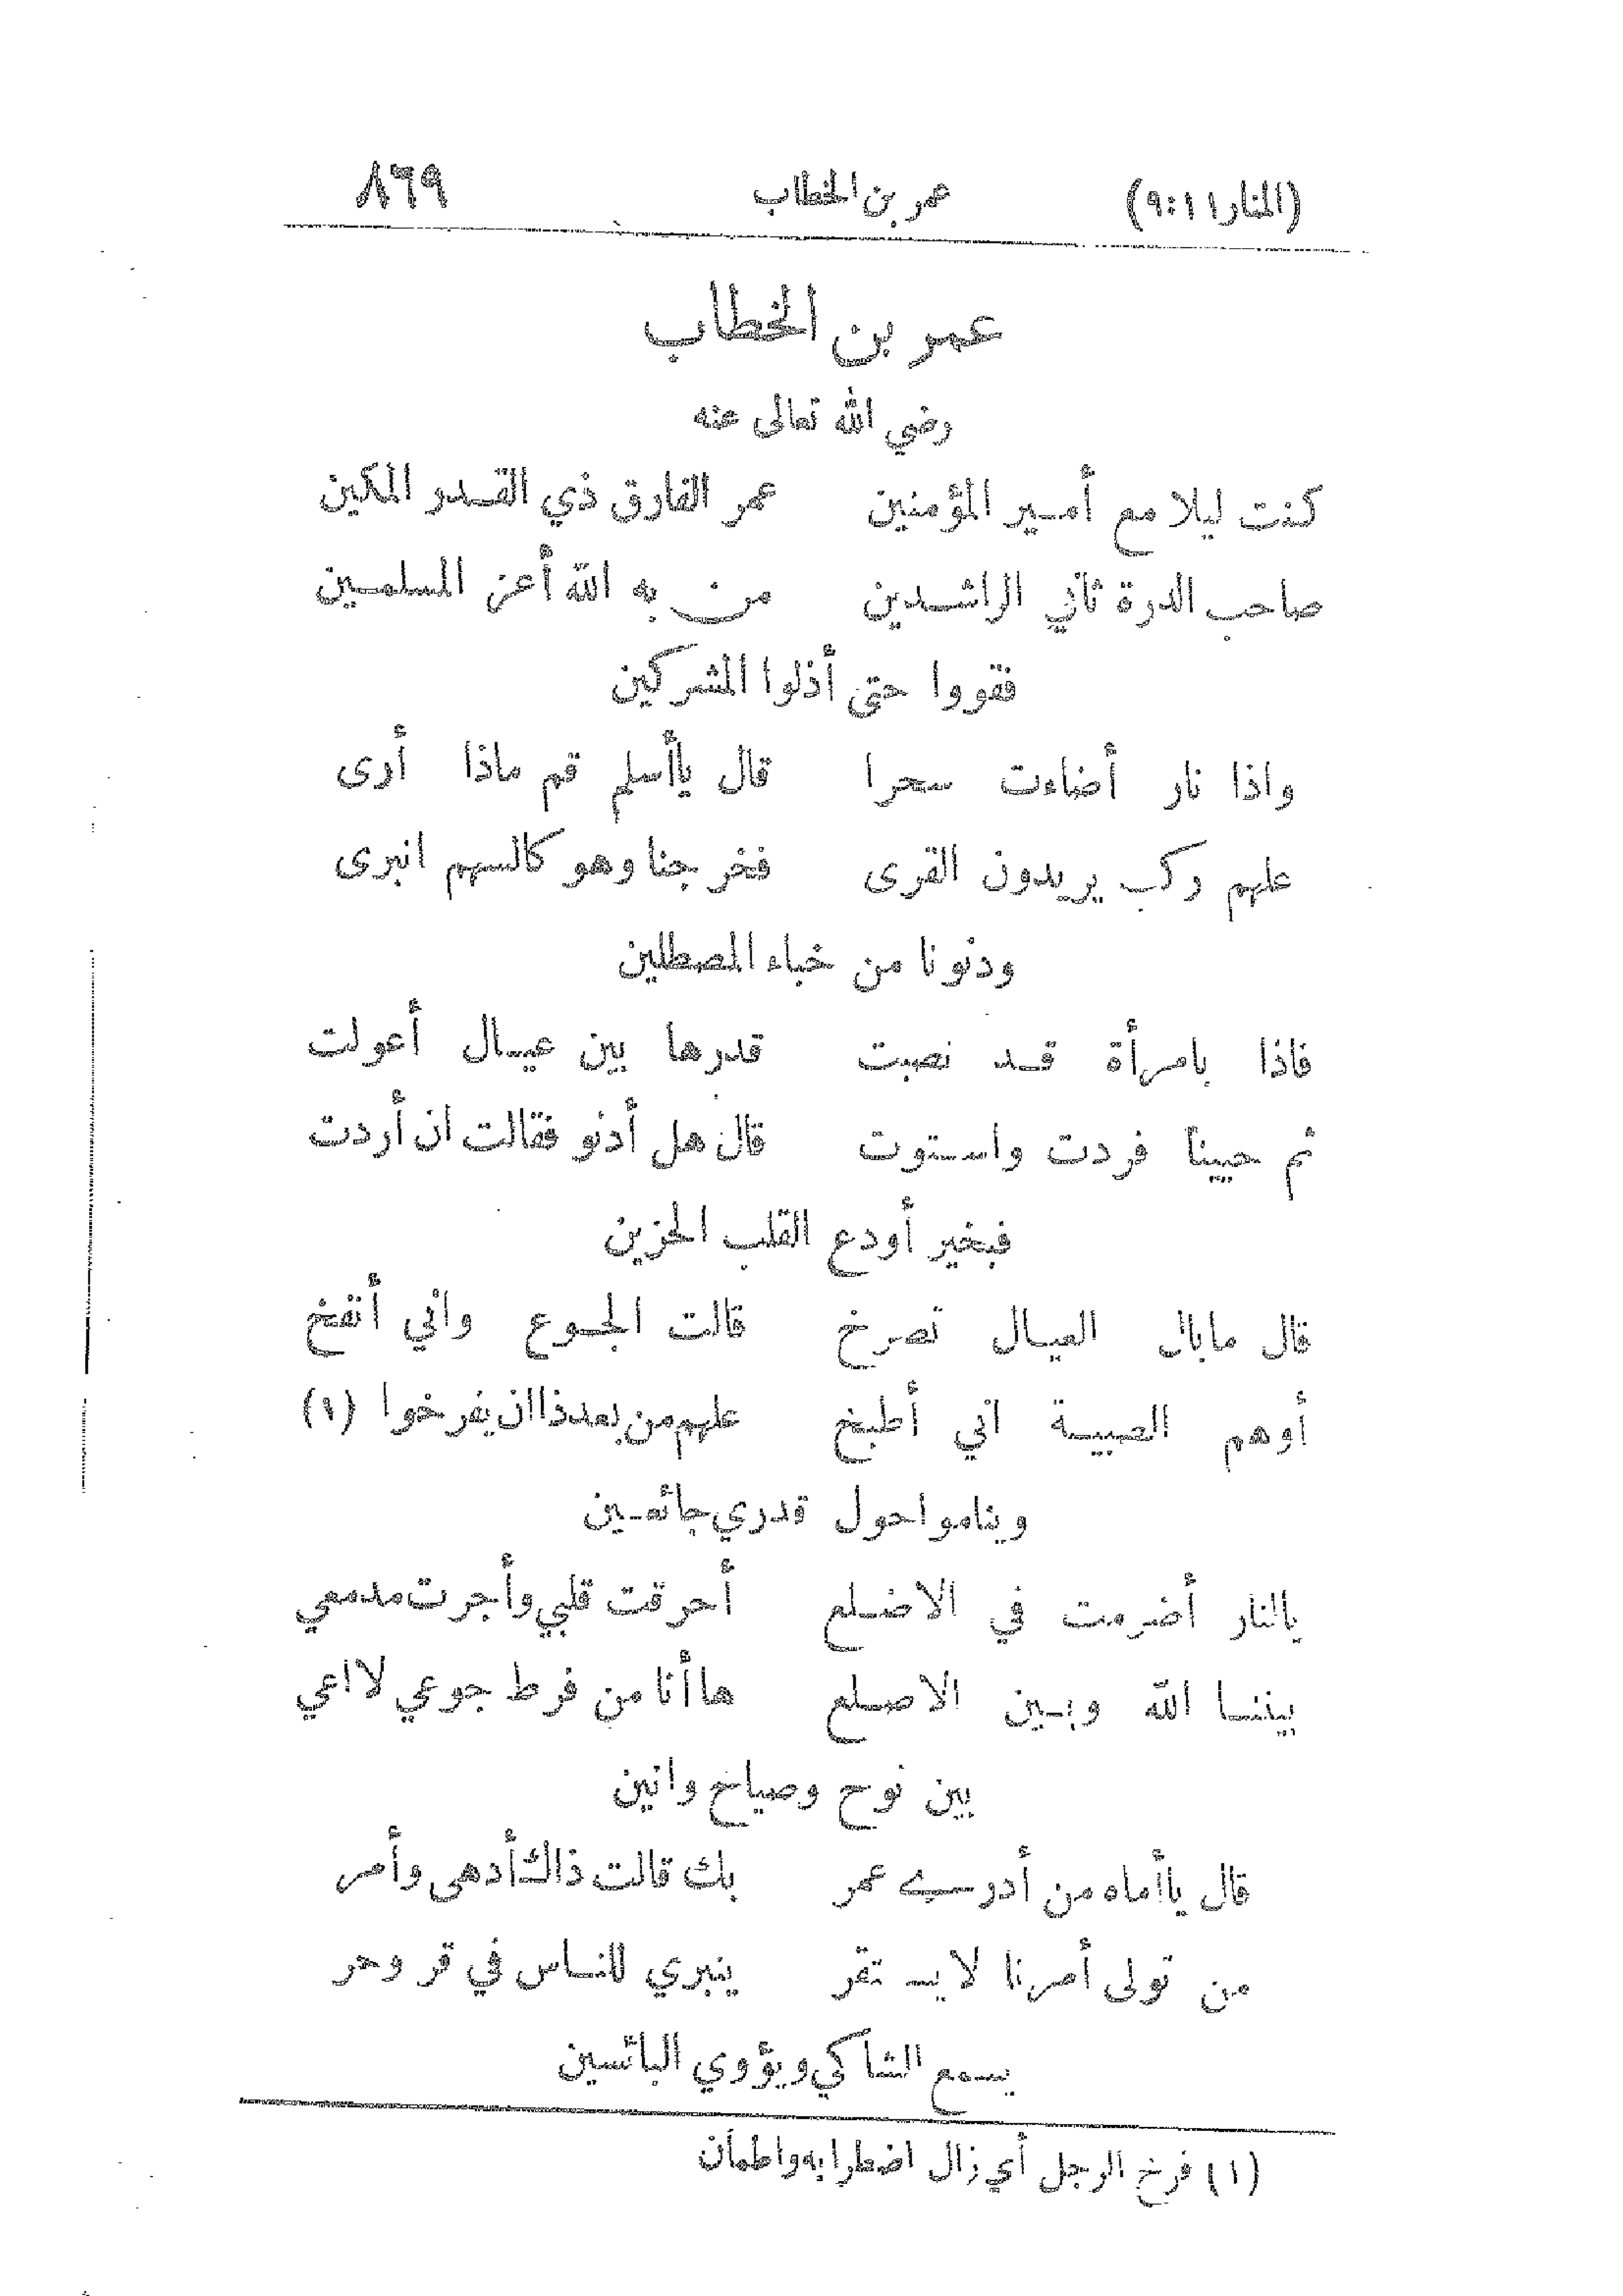 (المنار ١١:٩) عمر بن الخطاب ٨٦٩
عمر بن الخطاب
رضي الله تعالى عنه
كنت ليلا مع أمير المؤمنين عمر الفارق ذي القدر المكين
صاحب الدرة ثاني الراشدين من به الله أعز المسلمين
فقووا حتى أذلوا المشركين
واذا نار أضاءت سحرا قال ياأسلم قم ماذا أرى
علهم ركب يريدون القرى فخرجنا وهو كالسهم انبرى
ودنونا من خباء المصطلين
فاذا بامرأة قد نصبت قدرها بين عيال أعولت
ثم حيينا فردت واستوت قال هل أدنو فقالت ان أردت
فبخير أودع القلب الحزين
قال مابال العيال تصرخ قالت الجوع واني أنفخ
أوهم الصبية اني أطبخ علهم من بعد ذا ان يفرخوا (١)
ويناموا حول قدري جائمين
يالنار أضرمت في الاضلع أحرقت قلبي وأجرت مدمعي
بيننا الله وبين الاصلع ها أنا من فرط جوعي لا اعي
بين نوح وصياح وانين
قال ياأماه من أدرى عمر بك قالت ذاك أدهى وأمر
من تولى أمرنا لا يستقر ينبري للناس في قر وحر
يسمع الشاكي ويؤوي البائسين
(١) فرخ الرجل أي زال اضطرابه واطمأن